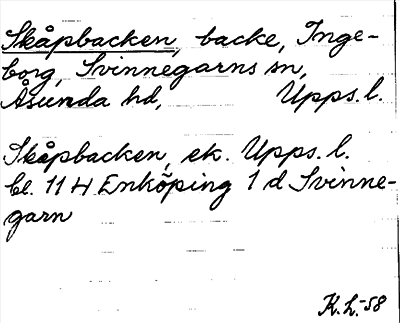 Skåpbacken, backe, Inge-
borg, Svinnegarns sn,
Åsunda hd, Upps. l.
Skåpbacken, ek. Upps. l.
bl. 11 H Enköping 1 d Svinne-
garn
K.L.-58